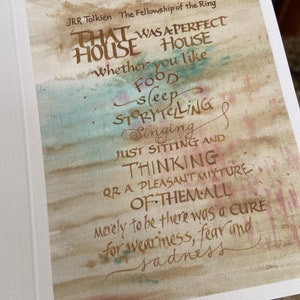 JRR Tolkien The Fellowship of the Ring
THAT WAS A PERFECT
HOUSE HOUSE
whether you like
FOOD
sleep
STORYTELLING
Singing
JUST SITTING AND
THINKING
OR A PLEASANT MIXTURE
OF THEM ALL
Merely to be there was a CURE
for weariness, fear and
sadness